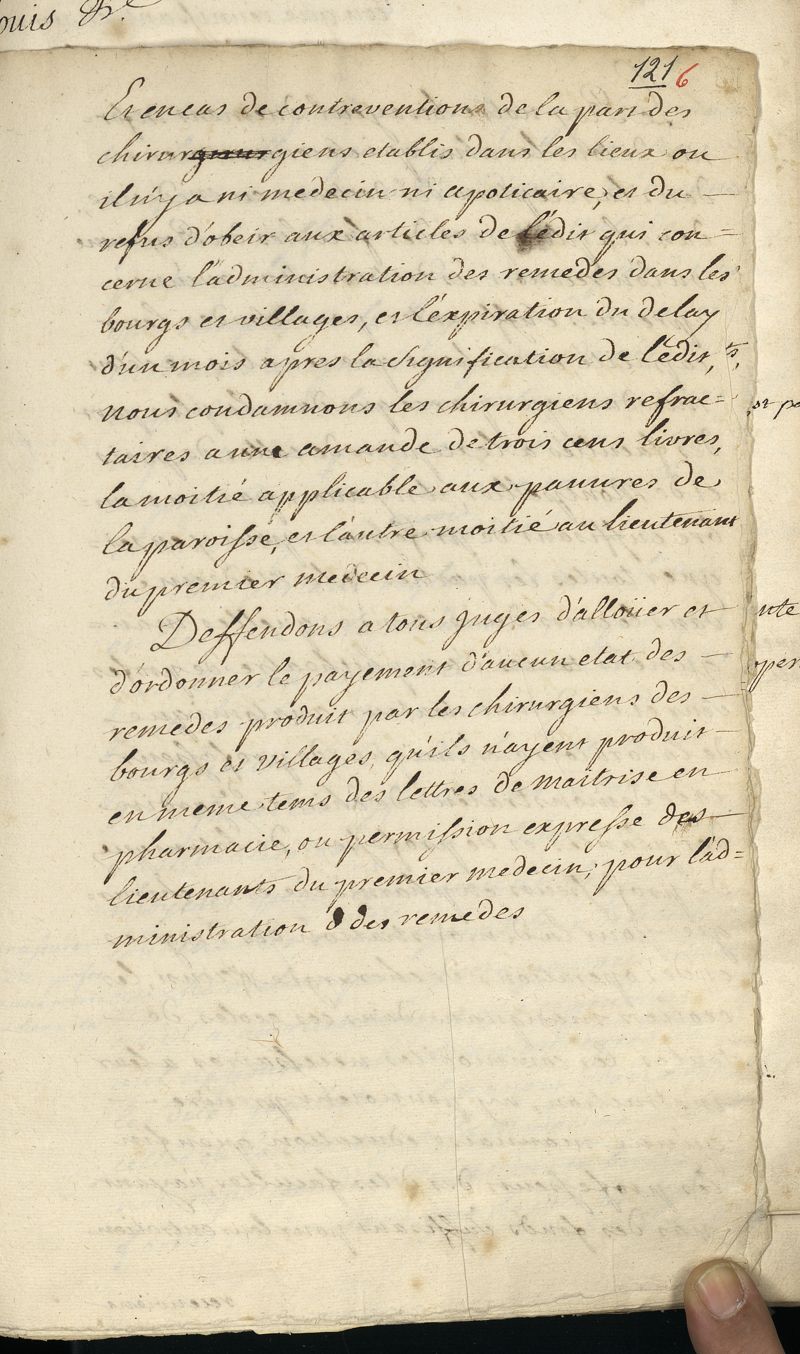 ouis &c
121 6
Et en cas de contreventions de la part des
chirurgiurgiens etablis dans les lieux ou
il n'y a ni medecin ni apoticaire, et du
refus d'obeir aux articles de l'edit qui con=
cerne l'administration des remedes dans les
bourgs et villages, et l'expiration du delay
d'un mois apres la signification de l'edit,
nous condamnons les chirurgiens refrac=
taires a une amande de trois cens livres,
la moitié applicable aux pauures de
la paroisse, et l'autre moitié au lieutenant
du premier medecin
Deffendons a tous juges d'alloüer et
d'ordonner le payement d'aucun etat des
remedes produit par les chirurgiens des
bourgs et villages, qu'ils n'ayent produit
en meme tems des lettres de maitrise en
pharmacie, ou permission expresse des
lieutenants du premier medecin, pour l'ad=
ministration des remedes